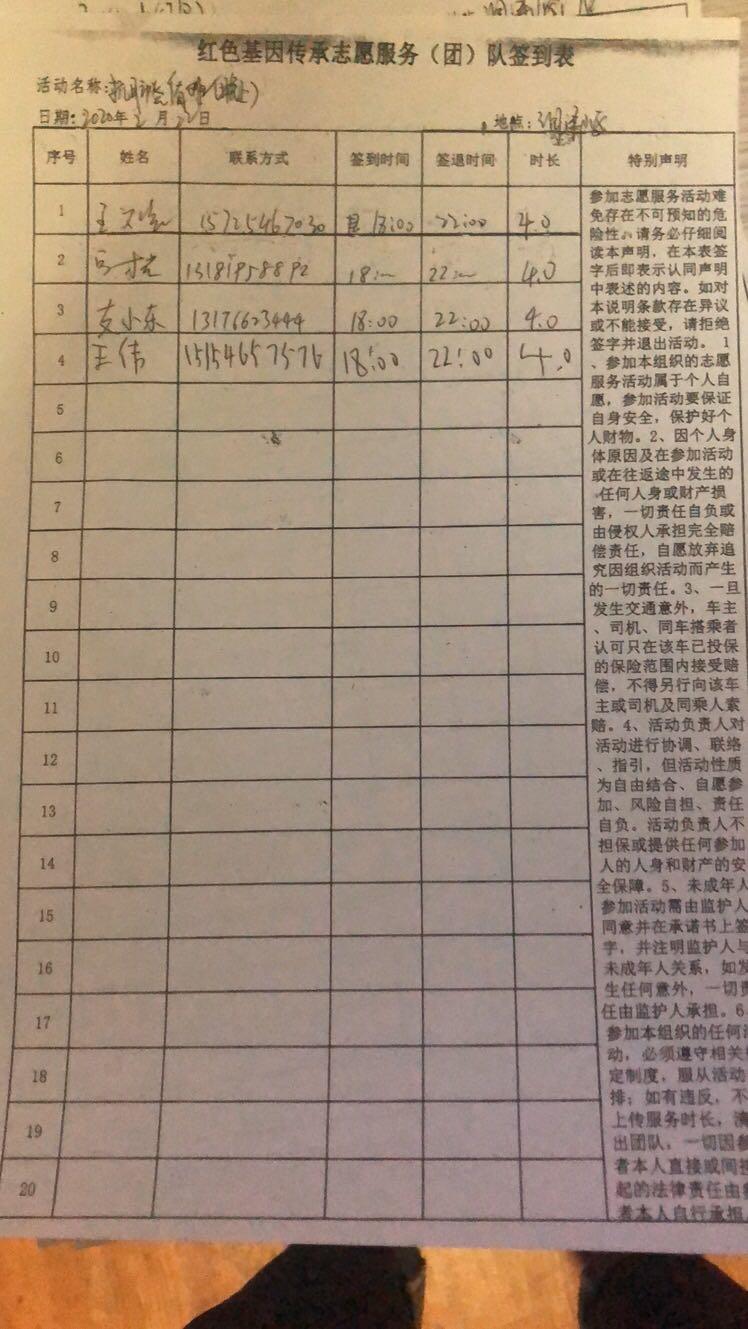 红色基因传承志愿服务（团）队签到表
活动名称:
日期: 2020年2月22日 地点:
序号 姓名 联系方式 签到时间 签退时间 时长 特别声明
1 王 15725467030 18:00 22:00 4.0
2 22:00 4.0
3 支小东 13176623444 18:00 22:00 4.0
4 王伟 15154657576 18:00 22:00 4.0
5
6
7
8
9
10
11
12
13
14
15
16
17
18
19
20
参加志愿服务活动难
免存在不可预知的危
险性。请务必仔细阅
读本声明，在本表签
字后即表示认同声明
中表述的内容。如对
本说明条款存在异议
或不能接受，请拒绝
签字并退出活动。1
、参加本组织的志愿
服务活动属于个人自
愿，参加活动要保证
自身安全，保护好个
人财物。2、因个人身
体原因及在参加活动
或在往返途中发生的
任何人身或财产损
害，一切责任自负或
由侵权人承担完全赔
偿责任，自愿放弃追
究因组织活动而产生
的一切责任。3、一旦
发生交通意外，车主
、司机、同车搭乘者
认可只在该车已投保
的保险范围内接受赔
偿，不得另行向该车
主或司机及同乘人索
赔。4、活动负责人对
活动进行协调、联络
、指引，但活动性质
为自由结合、自愿参
加、风险自担、责任
自负。活动负责人不
担保或提供任何参加
人的人身和财产的安
全保障。5、未成年人
参加活动需由监护人
同意并在承诺书上签
字，并注明监护人与
未成年人关系，如发
生任何意外，一切责
任由监护人承担。6
参加本组织的任何活
动，必须遵守相关
定制度，服从活动
排；如有违反，不
上传服务时长，清
出团队，一切因参
者本人直接或间接
起的法律责任由
者本人自行承担